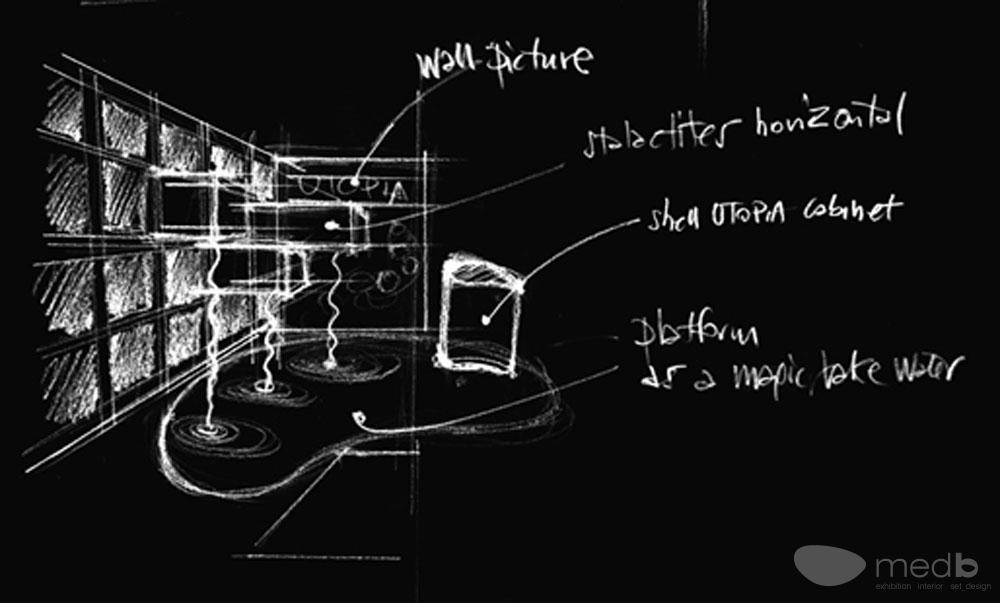 wall-picture
stalactites horizontal
UTOPIA
shell UTOPIA cabinet
platform
as a magic lake water
medb
exhibition interior set design